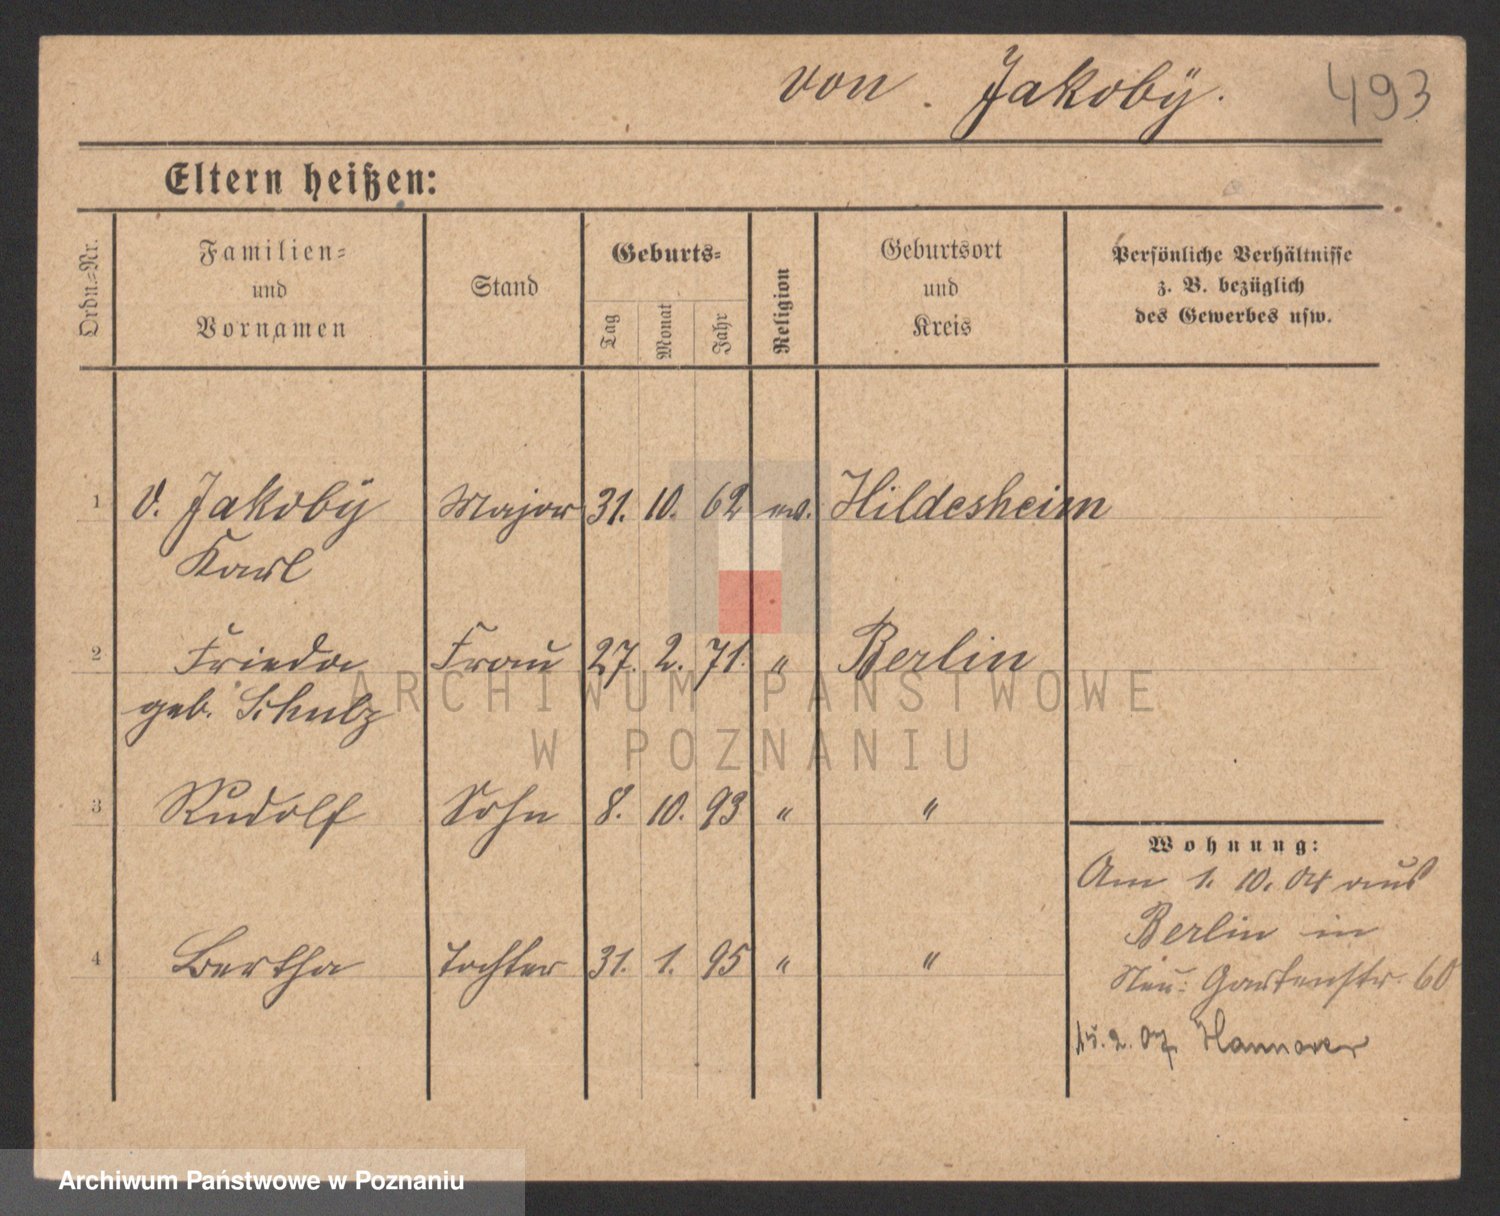 von Jakobÿ.
493
Eltern heißen:
Ordn.=Nr.
Familien=
und
Vornamen
Stand
Geburts=
Tag
Monat
Jahr
Religion
Geburtsort
und
Kreis
Persönliche Verhältnisse
z. B. bezüglich
des Gewerbes usw.
1 v. Jakobÿ Major 31. 10. 62 ev. Hildesheim
Karl
2 Frieda Frau 27. 2. 71. " Berlin
geb. Schulz
3 Rudolf Sohn 8. 10. 93 " "
4 Bertha Tochter 31. 1. 95 " "
Wohnung:
Am 1. 10. 04 aus
Berlin in
Neu: Gartenstr. 60
15. 2. 07 Hannover
ARCHIWUM PAŃSTWOWE
W POZNANIU
Archiwum Państwowe w Poznaniu